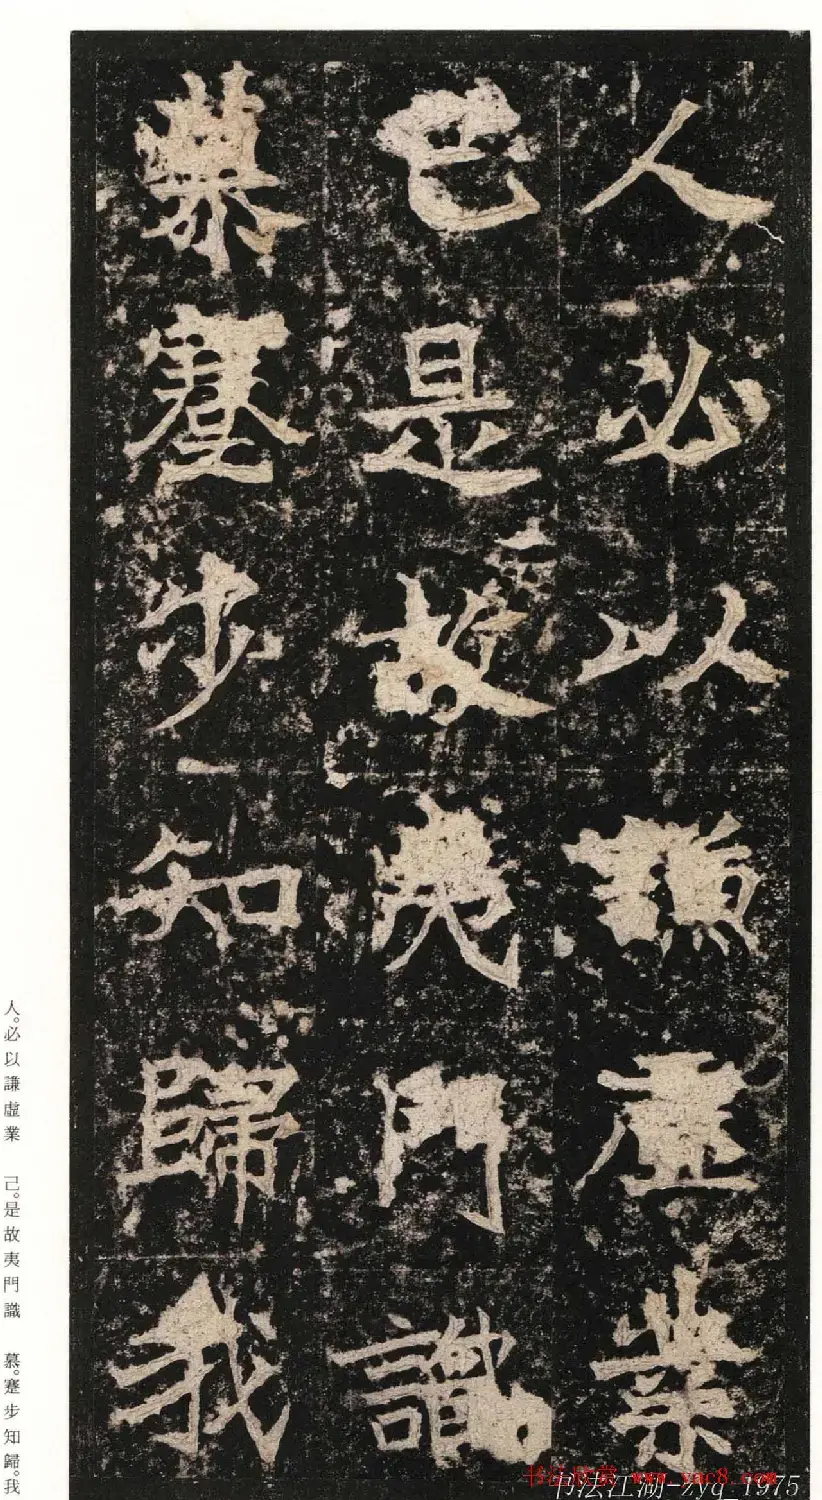 人必以謙虛業
己是故夷門識
慕蹇步知歸我
人。必以謙虛業　己。是故夷門識　慕。蹇步知歸。我
书法江湖-zyq_1975
www.yac8.com